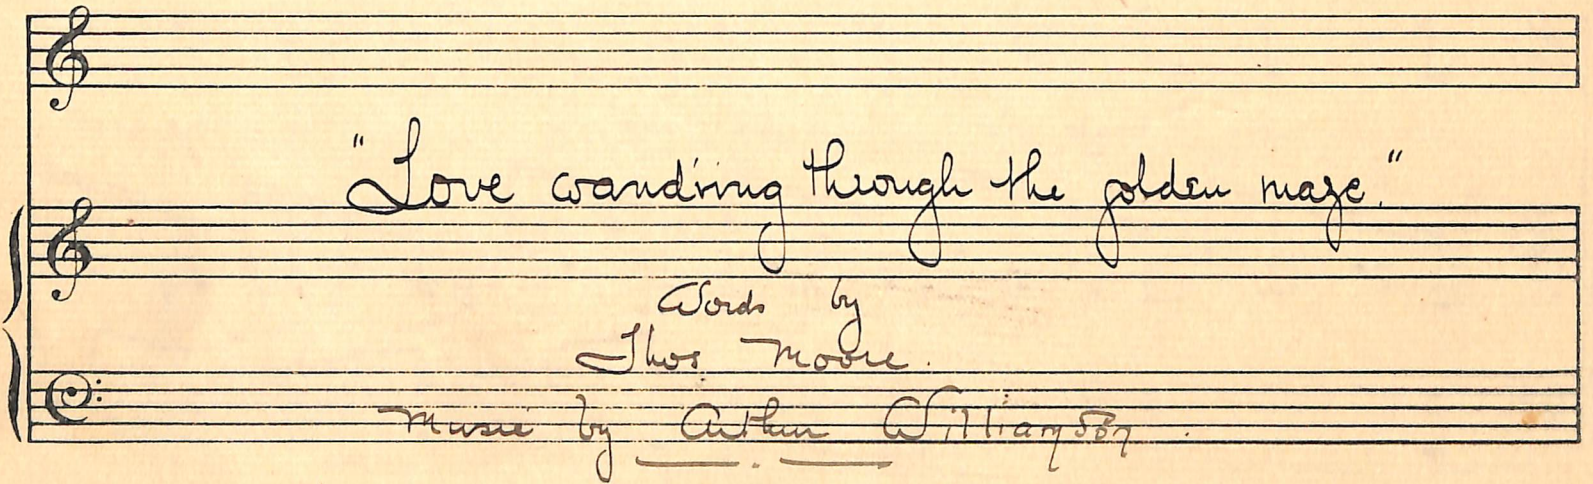 "Love wand'ring through the golden maze."
Words by
Thos. Moore.
Music by Arthur Williamson.